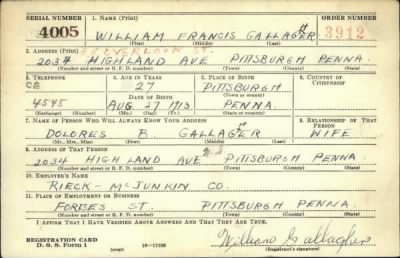 SERIAL NUMBER 1. NAME (Print) ORDER NUMBER
4005 WILLIAM FRANCIS GALLAGHER 3912
(First) (Middle) (Last)
2. ADDRESS (Print) OVERLOOK ST.
2034 HIGHLAND AVE PITTSBURGH PENNA.
(Number and street or R. F. D. number) (Town) (County) (State)
3. TELEPHONE 4. AGE IN YEARS 5. PLACE OF BIRTH 6. COUNTRY OF CITIZENSHIP
CE 27 PITTSBURGH
DATE OF BIRTH (Town or county)
4545 AUG. 27 1913 PENNA.
(Exchange) (Number) (Mo.) (Day) (Yr.) (State or country)
7. NAME OF PERSON WHO WILL ALWAYS KNOW YOUR ADDRESS 8. RELATIONSHIP OF THAT PERSON
DOLORES B. GALLAGHER WIFE
(Mr., Mrs., Miss) (First) (Middle) (Last)
9. ADDRESS OF THAT PERSON
2034 HIGHLAND AVE PITTSBURGH PENNA.
(Number and street or R. F. D. number) (Town) (County) (State)
10. EMPLOYER'S NAME
RIECK-McJUNKIN CO.
11. PLACE OF EMPLOYMENT OR BUSINESS
FORBES ST. PITTSBURGH PENNA.
(Number and street or R. F. D. number) (Town) (County) (State)
I AFFIRM THAT I HAVE VERIFIED ABOVE ANSWERS AND THAT THEY ARE TRUE.
REGISTRATION CARD
D. S. S. Form 1 (over) 16—17105 William Gallagher
(Registrant's signature)